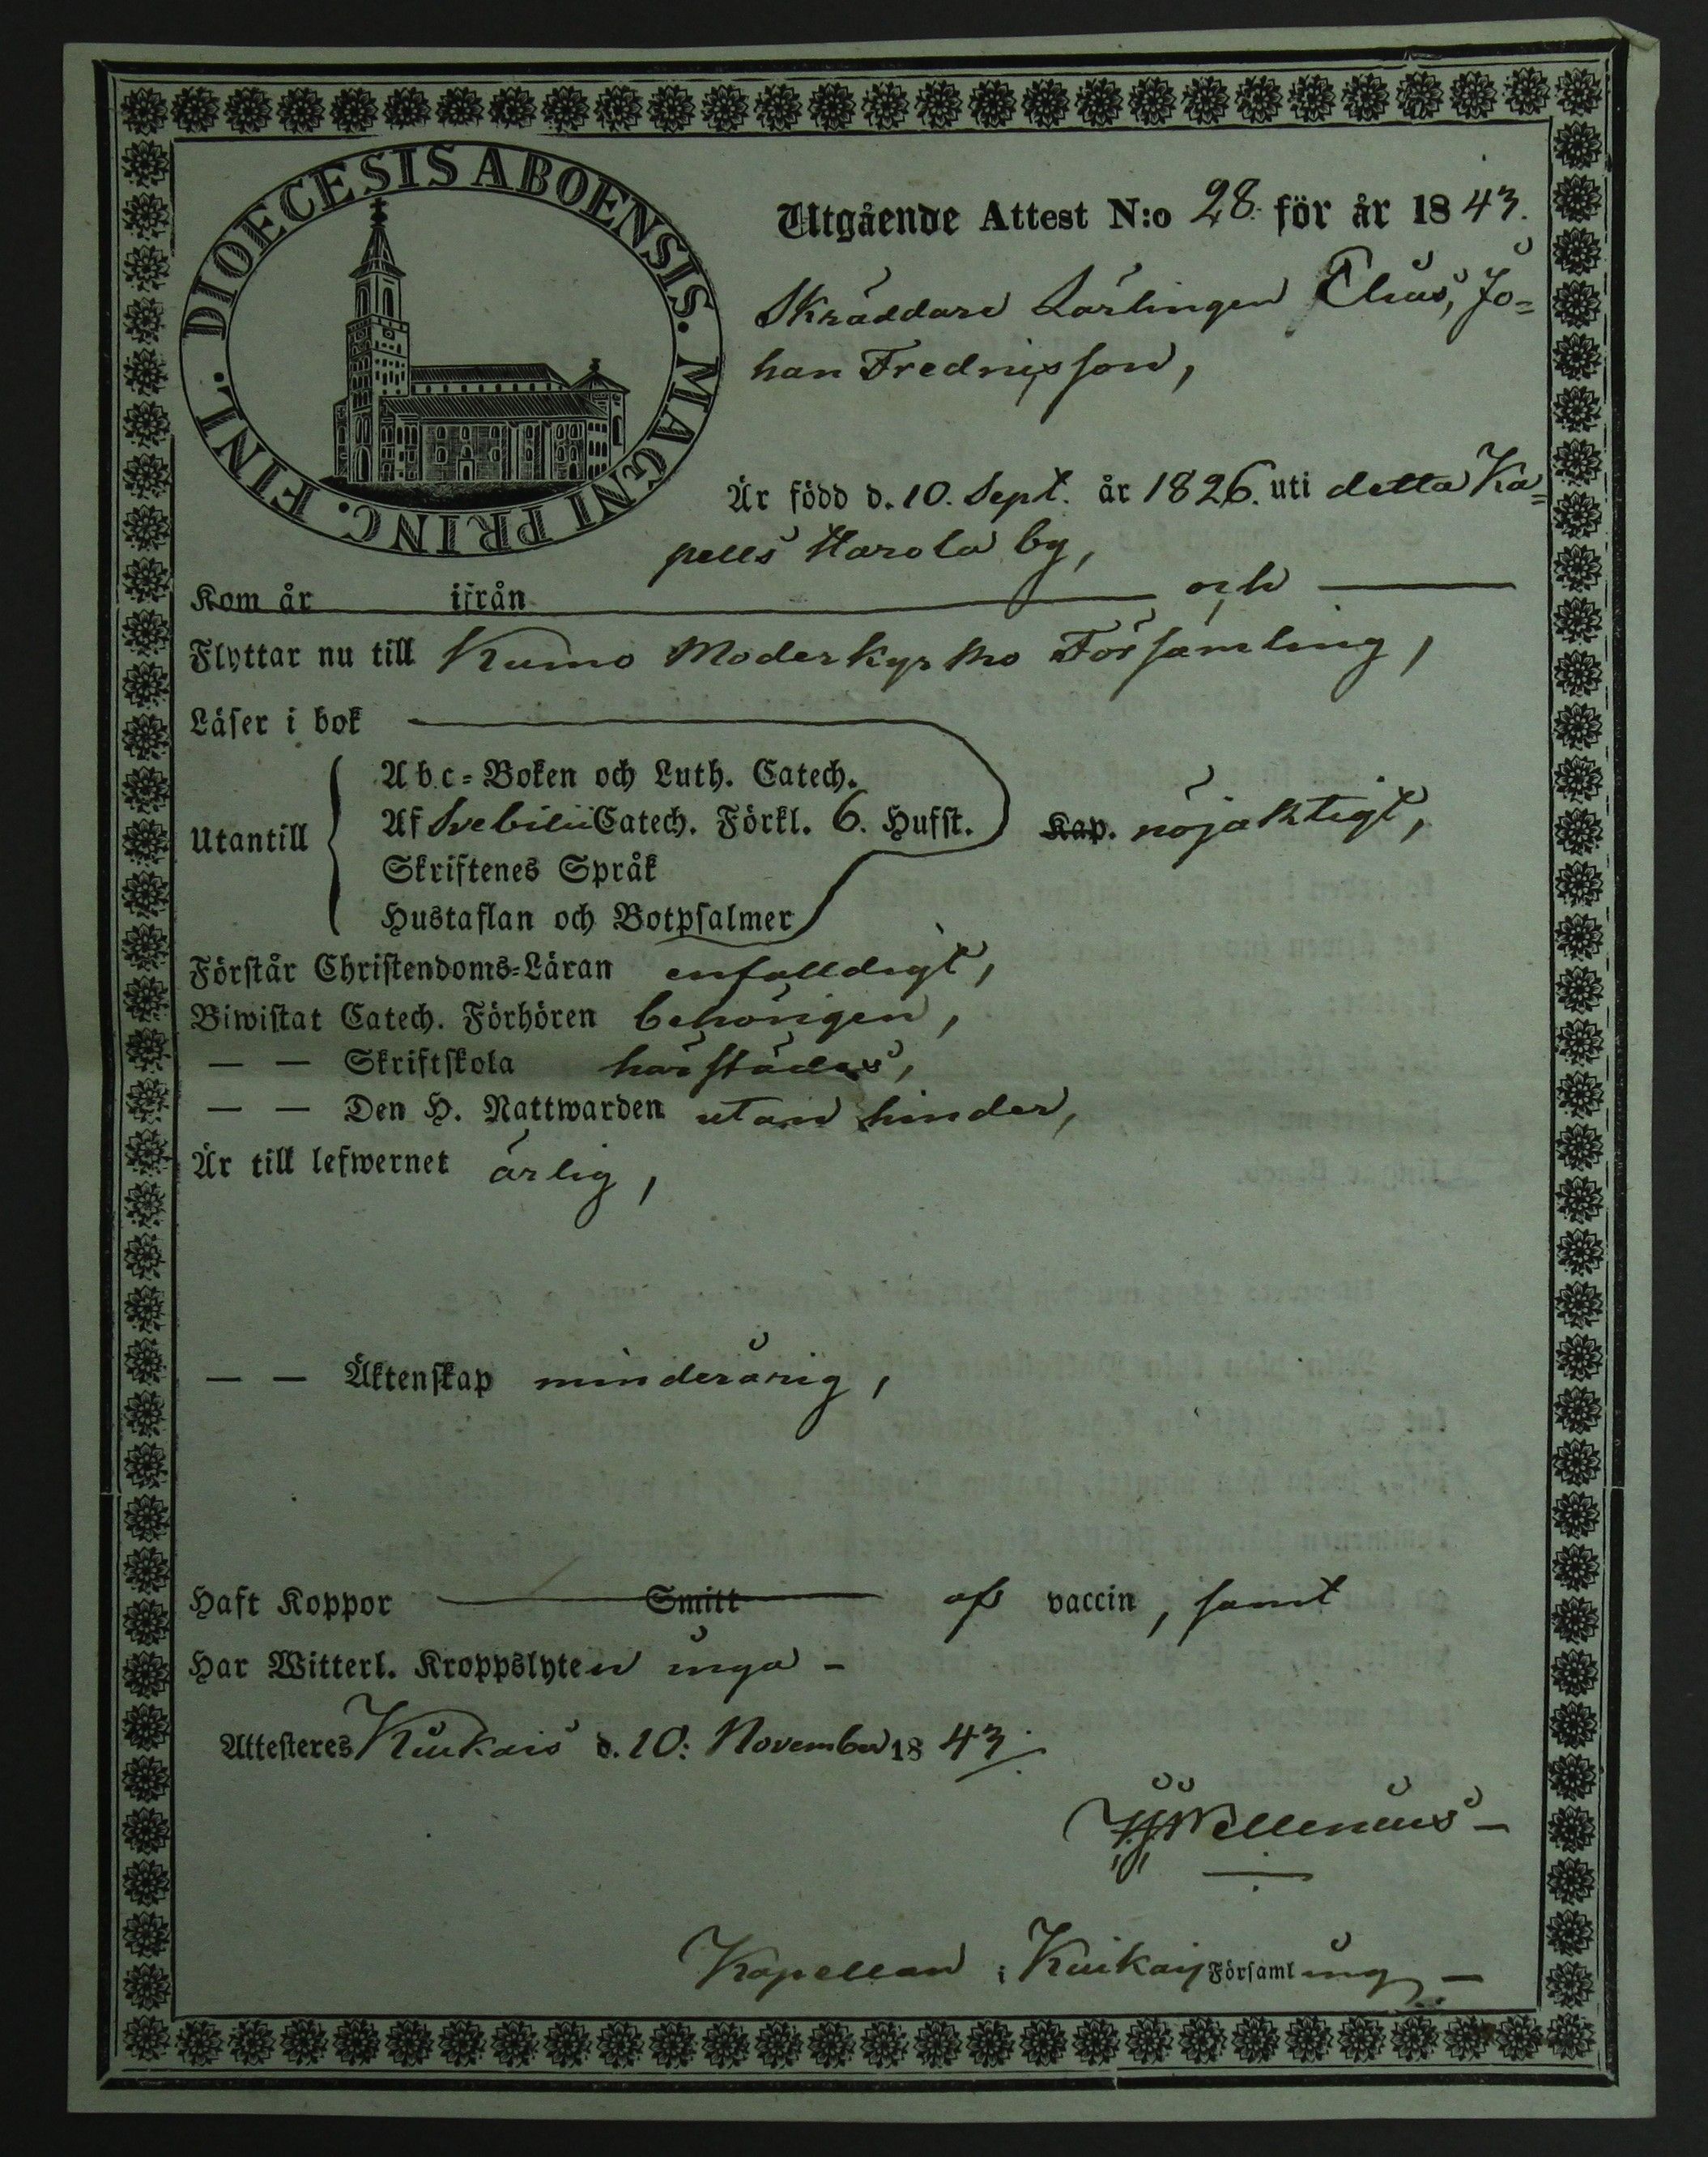 DIOECESIS ABOENSIS. MAGNI PRINC. FINL.
Utgående Attest N:o 28. för år 1843.
Skräddare Lärlingen Elias, Jo=
han Fredricsson,
Är född d. 10. Sept. år 1826. uti detta Ka=
pells Harola by,
Kom år ifrån och
Flyttar nu till Kumo Moderkyrko Församling,
Läser i bok
Utantill
Abc=Boken och Luth. Catech.
Af Svebilii Catech. Förkl. 6. Hufst. Kap. nöjaktigt,
Skriftenes Språk
Hustaflan och Botpsalmer
Förstår Christendoms=Läran enfalldigt,
Biwistat Catech. Förhören behörigen,
— — Skriftskola härstädes,
— — Den H. Nattwarden utan hinder,
Är till lefwernet ärlig,
— — Äktenskap minderårig,
Haft Koppor Smitt af vaccin, samt
Har Witterl. Kroppslyten inga -
Attesteres Kiukais d. 10: November 1843.
Wellenius -
Kapellan i Kiukais Församling -